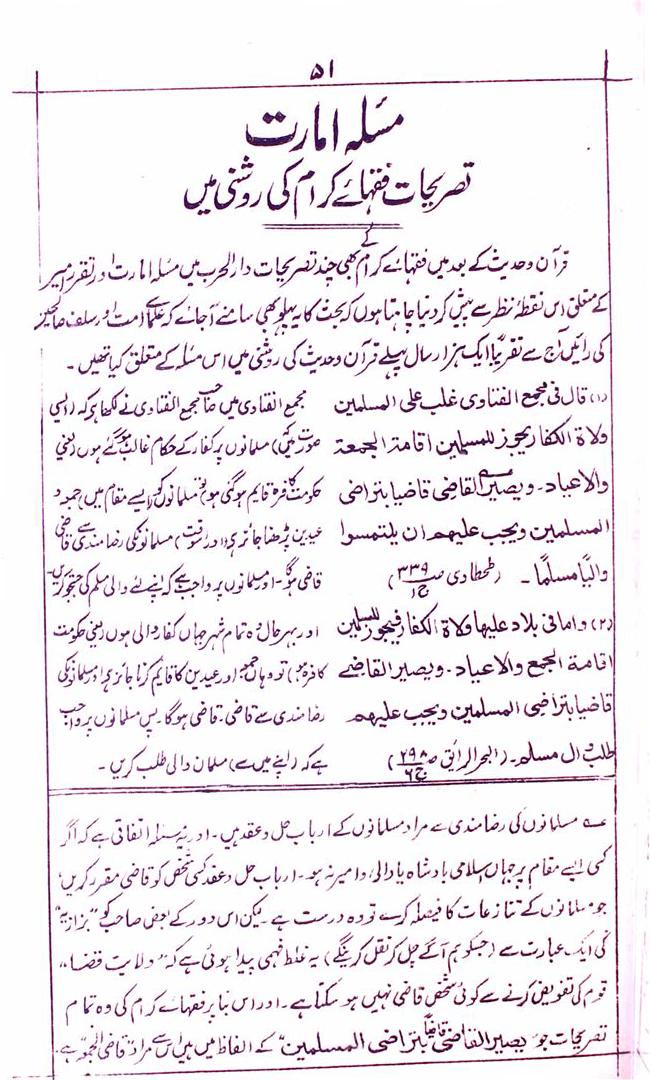 ۵۱
مسئلہ امارت
تصریحات فقہائے کرام کی روشنی میں
قرآن وحدیث کے بعد میں فقہائے کرام کے بھی چند تصریحات دارالحرب میں مسئلہ امارت اور تقرر امیر
کے متعلق اس نقطۂ نظر سے پیش کر دنیا چاہتا ہوں کہ بحث کا یہ پہلو بھی سامنے آجائے کہ علمائے امت اور سلف صالحین
کی رائیں آج سے تقریباً ایک ہزار سال پہلے قرآن وحدیث کی روشنی میں اس مسئلہ کے متعلق کیا تھیں۔
(۱) قال فی مجمع الفتاوی غلب علی المسلمین
ولاة الکفار یجوز للمسلمین اقامة الجمعة
والاعیاد۔ ویصیر القاضی قاضیا بتراضی
المسلمین ویجب علیھم ان یلتمسوا
والیا مسلما۔ (طحطاوی ص۳۳۹ ج۱)
مجمع الفتاوی میں صاحب مجمع الفتاوی نے لکھا ہو کہ (ایسی
صورت میں کہ) مسلمانوں پر کفار کے حکام غالب ہو گئے ہوں (یعنی
حکومت کافرہ قایم ہو گئی ہو) تو مسلمانوں کو (ایسے مقام میں) جمعہ و
عیدین پڑھنا جائز ہی (اور اسوقت) مسلمانوں کی رضامندی سے قاضی
قاضی ہوگا۔ اور مسلمانوں پر واجب ہے کہ اپنے لئے والی مسلم کی جستجو کریں۔
(۲) واما فی بلاد علیھا ولاة الکفار فیجوز للمسلمین
اقامة الجمع والاعیاد۔ ویصیر القاضے
قاضیا بتراضی المسلمین ویجب علیھم
طلب وال مسلم۔ (البحر الرائق ص۲۹۸ ج۶)
اور بہرحال وہ تمام شہر جہاں کفار والی ہوں (یعنی حکومت
کافرہ ہو) تو وہاں جمعہ اور عیدین کا قایم کرنا جائز ہی اور مسلمانوں کی
رضامندی سے قاضی۔ قاضی ہوگا۔ پس مسلمانوں پر واجب
ہے کہ (اپنے میں سے) مسلمان والی طلب کریں۔
عہ مسلمانوں کی رضامندی سے مراد مسلمانوں کے ارباب حل وعقد ہیں۔ اور یہ مسئلہ اتفاقی ہے کہ اگر
کسی ایسے مقام پر جہاں اسلامی بادشاہ یا والی وامیر نہ ہو۔ ارباب حل وعقد کسی شخص کو قاضی مقرر کریں
جو مسلمانوں کے تنازعات کا فیصلہ کرے تو وہ درست ہے۔ لیکن اس دور کے بعض صاحب کو "بزازیہ"
کی ایک عبارت سے (جسکو ہم آگے چل کر نقل کرینگے) یہ غلط فہمی پیدا ہوئی ہے کہ "ولایت قضا"
قوم کی تفویض کرنے سے کوئی شخص قاضی نہیں ہو سکتا ہے۔ اور اس بنا پر فقہائے کرام کی وہ تمام
تصریحات جو "یصیر القاضی قاضیاً بتراضی المسلمین" کے الفاظ میں ہیں اس سے مراد "قاضی الجمعہ" ہے